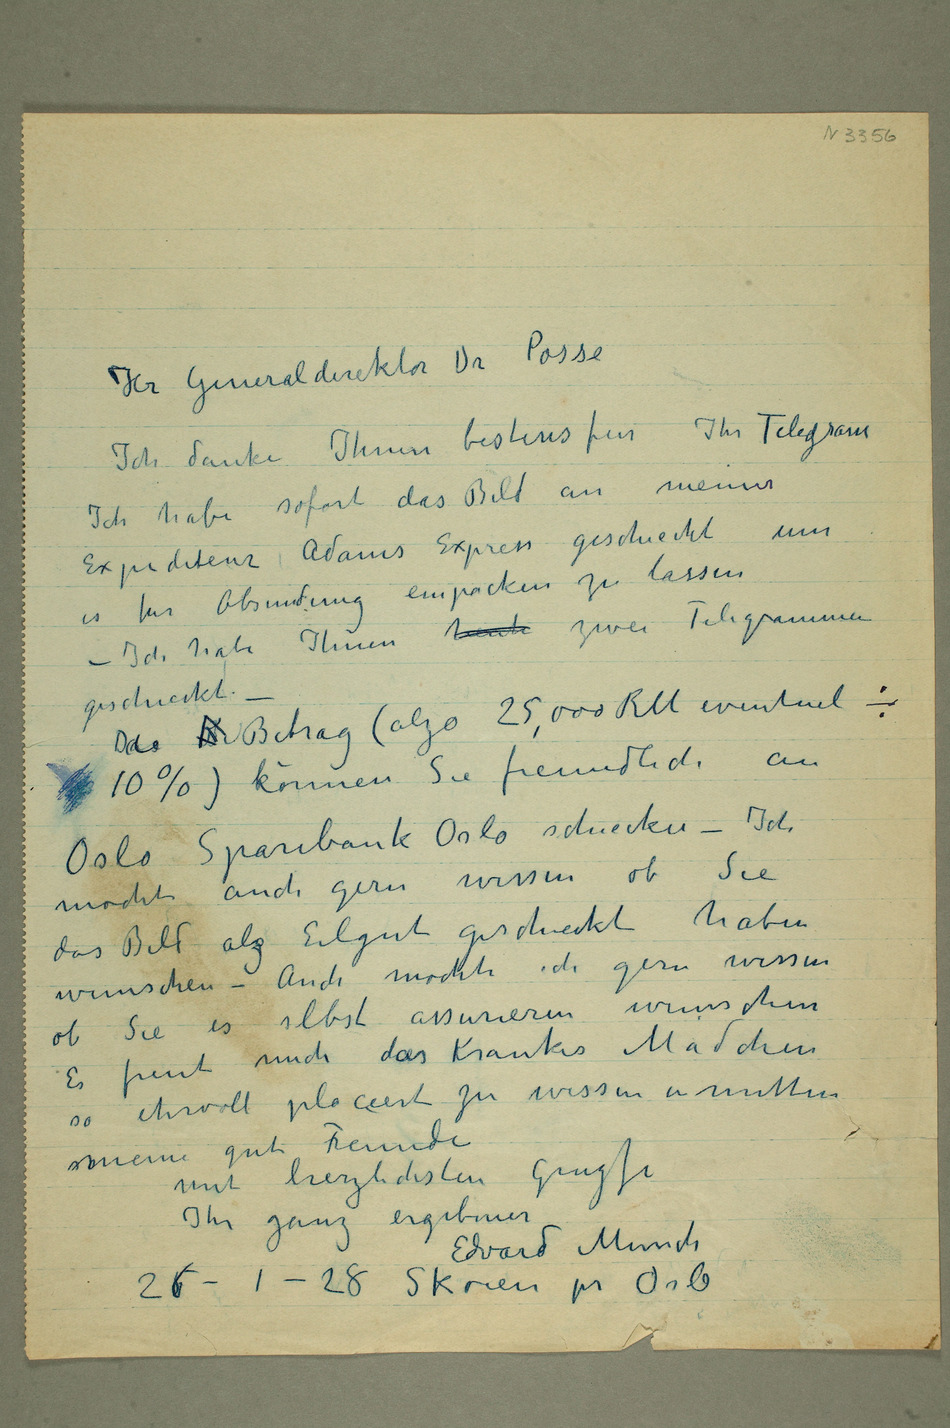 N 3356
Hr Generaldirektor Dr Posse
Ich danke Ihnen bestens fur Ihr Telegram
Ich habe sofort das Bild an meiner
Expediteur Adams Express geschieckt um
es fur Absendung empacken zu lassen
– Ich habe Ihnen heute zwei Telegrammen
geschieckt. –
Das Betrag (alzo 25,000 RM eventuel ÷
10%) können Sie freundlich an
Oslo Sparebank Oslo schiecken – Ich
mochte auch gern wissen ob Sie
das Bild alz Eilgut geschieckt haben
wunschen – Auch mochte ich gern wissen
ob Sie es selbst assurieren wunschen
Es freut mich das Krankes Mädchen
so ehrvoll placiert zu wissen u mitten
meine gute Freunde
mit herzlichsten Grusse
Ihr ganz ergebener
Edvard Munch
26 – 1 – 28 Skøien pr Oslo